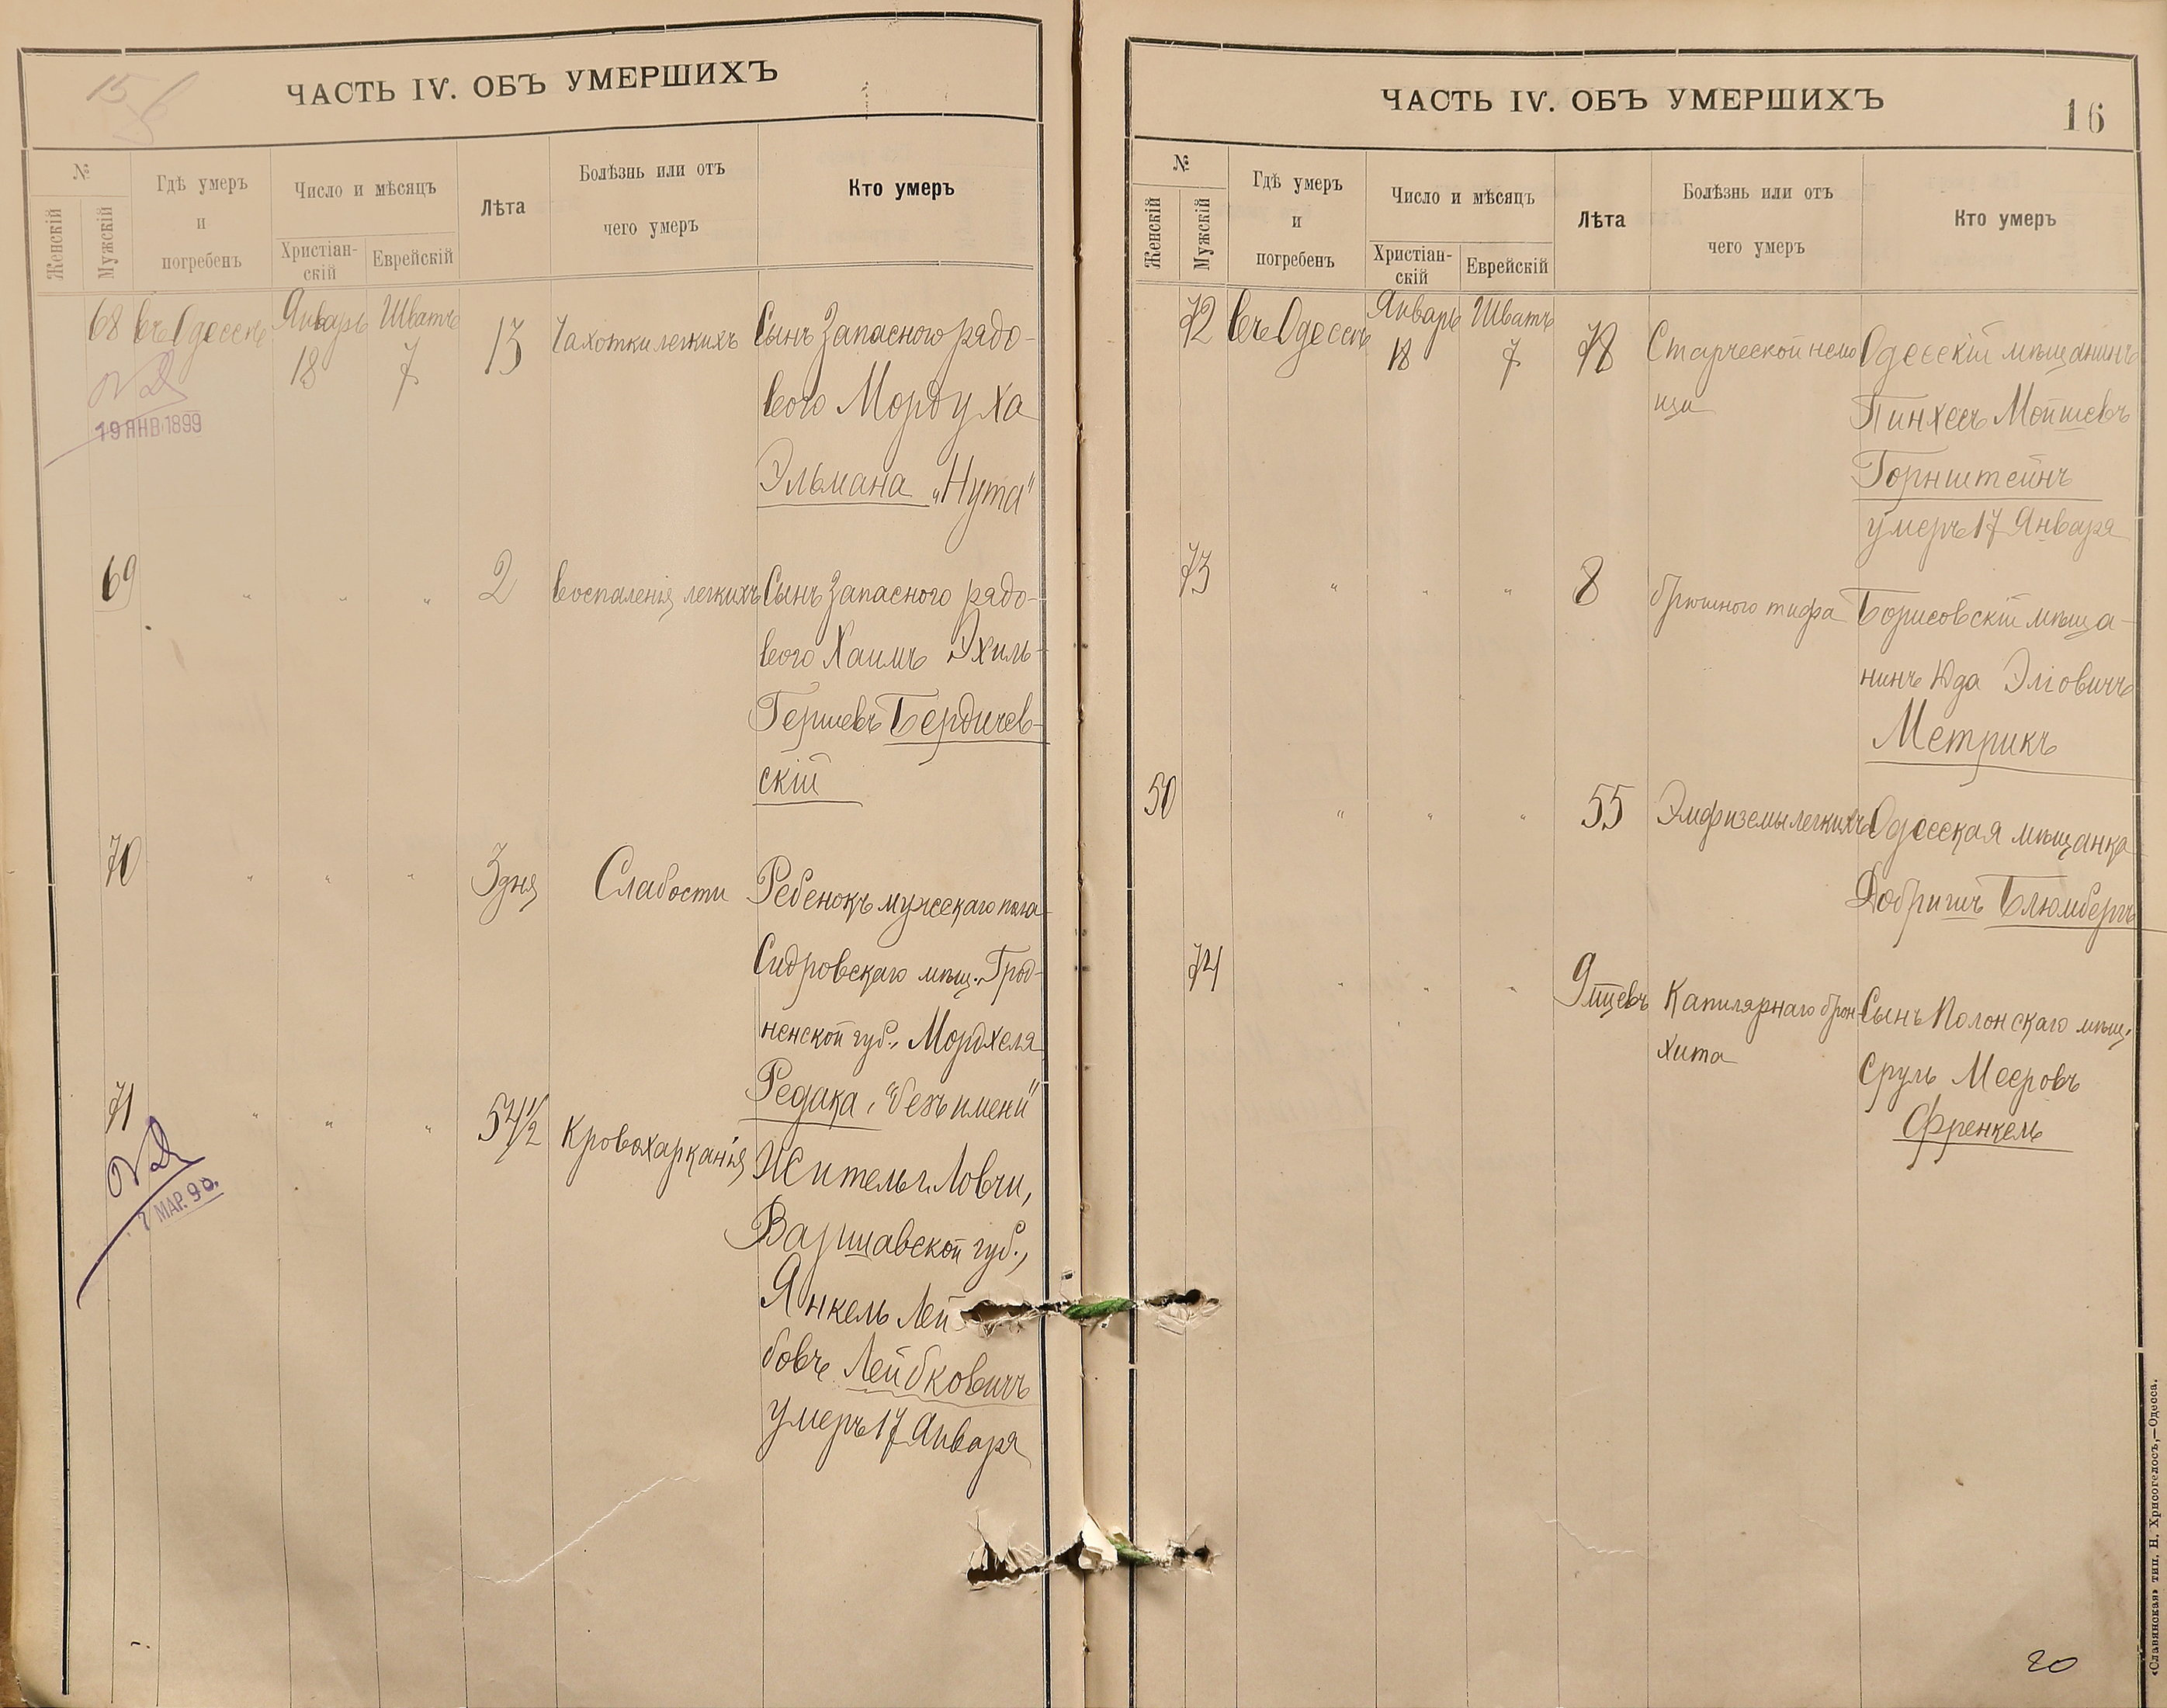 15
ЧАСТЬ IV. ОБЪ УМЕРШИХЪ
№
Женскій
Мужскій
Гдѣ умеръ
и
погребенъ
Число и мѣсяцъ
Христіан-
скій
Еврейскій
Лѣта
Болѣзнь или отъ
чего умеръ
Кто умеръ
68 въ Одессѣ Январь 18 Шватъ 7 13 Чахотки легкихъ Сынъ Запасного рядо-
вого Мордуха
Эльмана „Нута"
19 ЯНВ 1899
69 " " " 2 воспаленія легкихъ Сынъ Запасного рядо-
вого Хаимъ Эхиль-
Гершевъ Бердичев-
скій
70 " " " 3 дня Слабости Ребенокъ мужескаго пола
Сидровскаго мѣщ. Грод-
ненской губ., Мордхеля
Редака, "безъ имени"
71 " " " 54 1/2 Кровохарканія Житель г. Ловчи,
Варшавской губ.,
Янкель Лей
бовъ Лейбковичъ
умеръ 17 Января
7 МАР. 9
ЧАСТЬ IV. ОБЪ УМЕРШИХЪ
16
№
Женскій
Мужскій
Гдѣ умеръ
и
погребенъ
Число и мѣсяцъ
Христіан-
скій
Еврейскій
Лѣта
Болѣзнь или отъ
чего умеръ
Кто умеръ
72 въ Одессѣ Январь 18 Шватъ 7 78 Старческой немо Одесскій мѣщанинъ
щи Пинхесъ Мойшевъ
Горнштейнъ
умеръ 17 Января
73 " " " 8 брюшного тифа Борисовскій мѣща-
нинъ Юда Эліовичъ
Метрикъ
50 " " " 55 Эмфиземы легкихъ Одесская мѣщанка
Добришъ Блюмбергъ
74 " " " 9 мцевъ Капилярнаго брон- Сынъ Полонскаго мѣщ.
хита Сруль Мееровъ
Френкель
20
«Славянская» тип. Н. Хрисогелосъ,—Одесса.